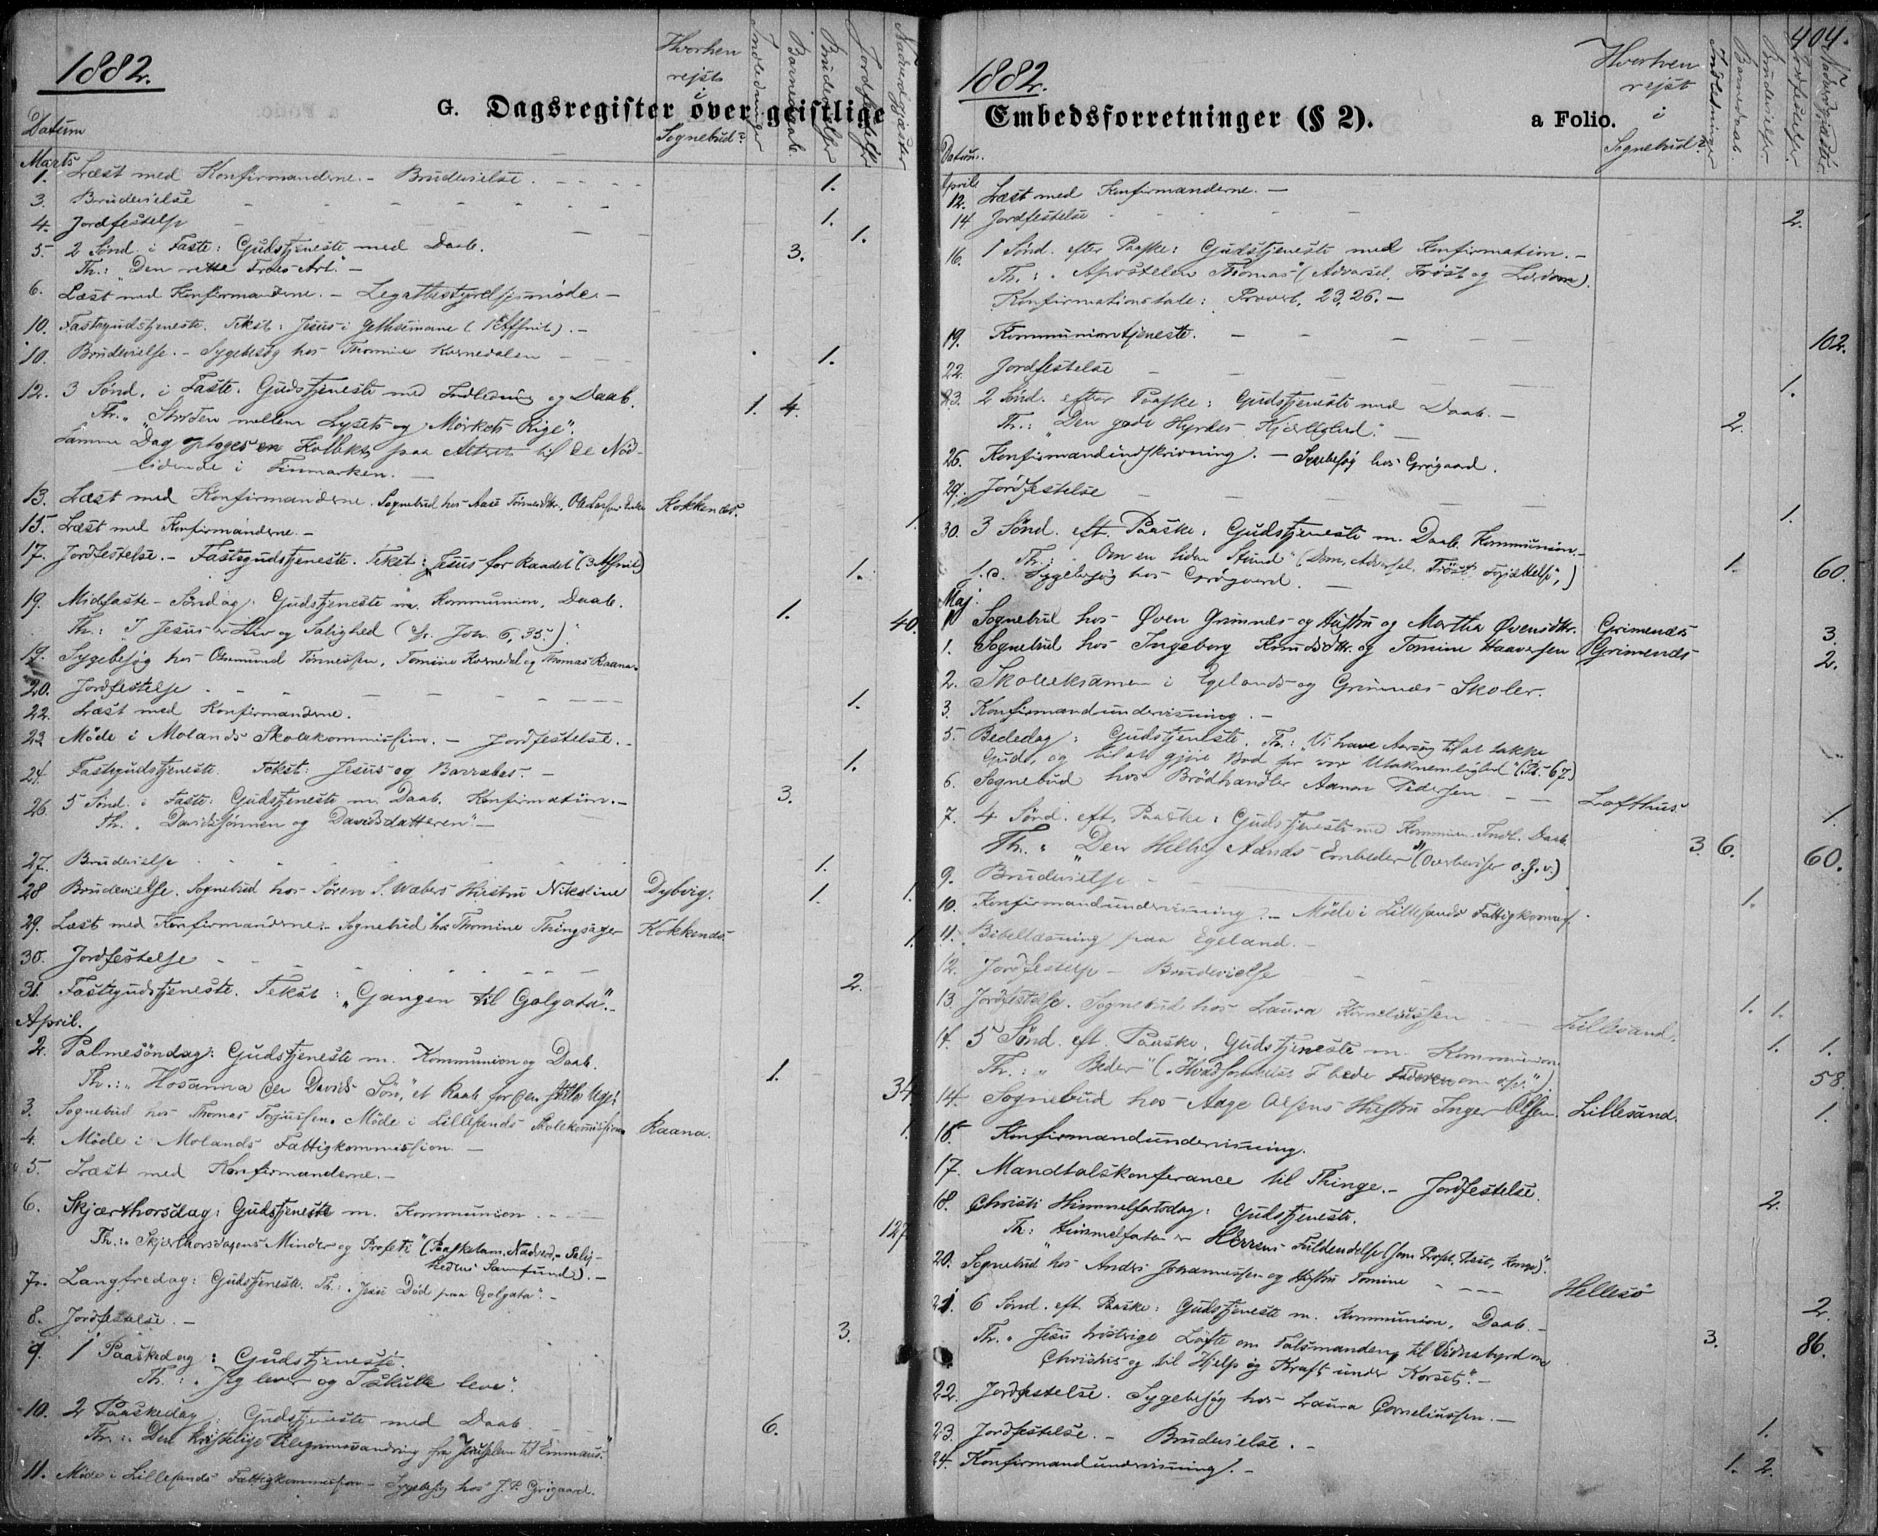 1882.
G. Dagsregister over geistlige
Datum
Hvorhen rejst i Sognebud?
Indledninger
Barnedaab.
Brudevielser
Jordfæstelser
Nadvergjæster
Marts
1. Læst med Konfirmanderne. - Brudevielse. 1.
3. Brudevielse 1.
4. Jordfestelse 1.
5. 2 Sønd. i Faste: Gudstjeneste med Daab. 3.
Th.: "Den rette Troes Art." -
6. Læst med Konfirmanderne. - Legatbestyrelsesmøde. -
10. Fastegudstjeneste. Tekst: Jesus i Gethsemane (1 Afsnit). -
10. Brudevielse. - Sygebesøg hos Thomine Kornedalen 1.
12. 3 Sønd. i Faste. Gudstjeneste med Indledning og Daab. 1. 4.
Th. "Striden mellem Lysets og Mørkets Rige".
Samme Dag optoges en Kollekt paa Altret til de Nød-
lidende i Finmarken. -
13. Læst med Konfirmanderne. Sognebud hos Aase Kokkenes. 1.
15. Læst med Konfirmanderne. -
17. Jordfestelse. - Fastegudstjeneste. Tekst: Jesus for Raadet (3 Afsnit) 1.
19. Midfaste-Søndag: Gudstjeneste m. Kommunion, Daab. 1. 40.
Th.: "I Jesus er Liv og Salighed (Joh. 6,35.)".
19. Sygebesøg hos Osmund Tønnessen, Tomine Kornedal og Thomas Raana.
20. Jordfestelse 1.
22. Læst med Konfirmanderne.
23. Møde i Molands Skolekommission. - Jordfestelse. 1.
24. Fastegudstjeneste. Tekst: Jesus og Barrabas. -
26. 5 Sønd. i Faste: Gudstjeneste m. Daab. Konfirmation. - 3.
Th. "Davidssønnen og Davidsdatteren" -
27. Brudevielse 1.
28 Brudevielse. Sognebud hos Søren S. Wabers Hustru Nikoline Dybvig. 1. 1.
29. Læst med Konfirmanderne. Sognebud hos Thomine Thingsager Kokkenes. 1.
30. Jordfestelse 2.
31. Fastegudstjeneste. Tekst: "Gangen til Golgata". -
April.
2. Palmesøndag: Gudstjeneste m. Kommunion og Daab. 1. 34
Th.: "Hosanna den Davids Søn", et Raab for
3. Sognebud hos Thomas Torjussen. Møde i Lillesands Skolekommission Raana. 1.
4. Møde i Molands Fattigkommission. -
5. Læst med Konfirmanderne. -
6. Skjærthorsdag: Gudstjeneste m. Kommunion 127
Th.: "Skjærthorsdagens Minder og Profeti" (Paaskelam, Nadver,
Samfund). -
7. Langfredag: Gudstjeneste. Th.: "Jesu Død paa Golgata". -
8. Jordfestelse. - 3.
9. 1 Paaskedag: Gudstjeneste.
Th.: "Jeg lever og I skulle leve".
10. 2 Paaskedag: Gudstjeneste med Daab 6.
Th.: "Den kristelige Pilegrimsvandring fra Jerusalem til Emmaus".
11. Møde i Lillesands Fattigkommission - Sygebesøg hos J. P. Grøgaard.
404.
1882.
Embedsforretninger (§ 2). a Folio.
Datum.
Hvorhen rejst i Sognebud?
Indledninger
Barnedaab.
Brudevielser.
Jordfæstelser.
Nadvergjæster.
April
12. Læst med Konfirmanderne. -
14. Jordfestelse 2.
16. 1 Sønd. efter Paaske: Gudstjeneste med Konfirmation. -
Th.: "Apostelen Thomas" (Advarsel, Trøst og Lærdom).
Konfirmationstale: Proverb. 23,26. -
19. Kommunionstjeneste. 102.
22. Jordfestelse 1.
23. 2 Sønd. efter Paaske: Gudstjeneste med Daab. - 2.
Th.: "Den gode Hyrdes Kjærlighed." -
26. Konfirmandindskrivning. - Sygebesøg hos Grøgaard.
29. Jordfestelse 1.
30. 3 Sønd. eft. Paaske: Gudstjeneste m. Daab. Kommunion. - 1. 60.
Th.: "Om en liden Stund" (Dom, Advarsel, Trøst,
J. D. Sygebesøg hos Grøgaard. -
Maj.
1 Sognebud hos Øven Grimnes og Hustru og Martha Øvensdtr. Grimenæs 3.
1. Sognebud hos Ingeborg Knudsdtr. og Tomine Haaversen Grimenæs 2.
2. Skoleeksamen i Egelands og Grimnes Skoler.
3. Konfirmandundervisning. -
5. Bededag: Gudstjeneste. Th.: "Vi have Aarsag til at takke
Gud, og til at gjøre Bod for vor Utaknemlighed" (Ps. 67)
6. Sognebud hos Brødhandler Aanon Pedersen Lofthus 1.
7. 4 Sønd. eft. Paaske: Gudstjeneste med Kommunion. Indl. Daab. 3. 6. 60.
Th.: "Den Hellig Aands Embeder" (Overbeviser o.s.v.)
9. Brudevielse 1.
10. Konfirmandundervisning. - Møde i Lillesands Fattigkommis.
11. Bibellæsning paa Egeland. -
12. Jordfestelse - Brudevielse 1. 1.
13. Jordfestelse. Sognebud hos Laura Korneliussen Lillesand. 1. 1.
14. 5 Sønd. eft. Paaske. Gudstjeneste m. Kommunion 58.
Th.: "Beder" ("Hvadsomhelst I bede Faderen om osv.").
14. Sognebud hos Aage Olsens Hustru Inger Olsen. Lillesand. 1.
16. Konfirmandundervisning.
17. Mandtalskonferance til Thinge. - Jordfestelse. 2.
18. Christi Himmelfartsdag: Gudstjeneste.
Th.: Himmelfarten er Herrens Fuldendelse (som Profet, Konge)".
20. Sognebud hos Anders Johannessen og Hustru Tomine Hellesø 2.
21. 6 Sønd. eft. Paaske: Gudstjeneste m. Kommunion, Daab. - 3. 86.
Th. "Jesu trøstrige Løfte om Talsmanden, til Vidnesbyrd om
Christus og til Hjelp og Kraft under Korset." -
22. Jordfestelse. Sygebesøg hos Laura Corneliussen. - 1.
23. Jordfestelse. - Brudevielse. - 1. 2.
24. Konfirmandundervisning. -